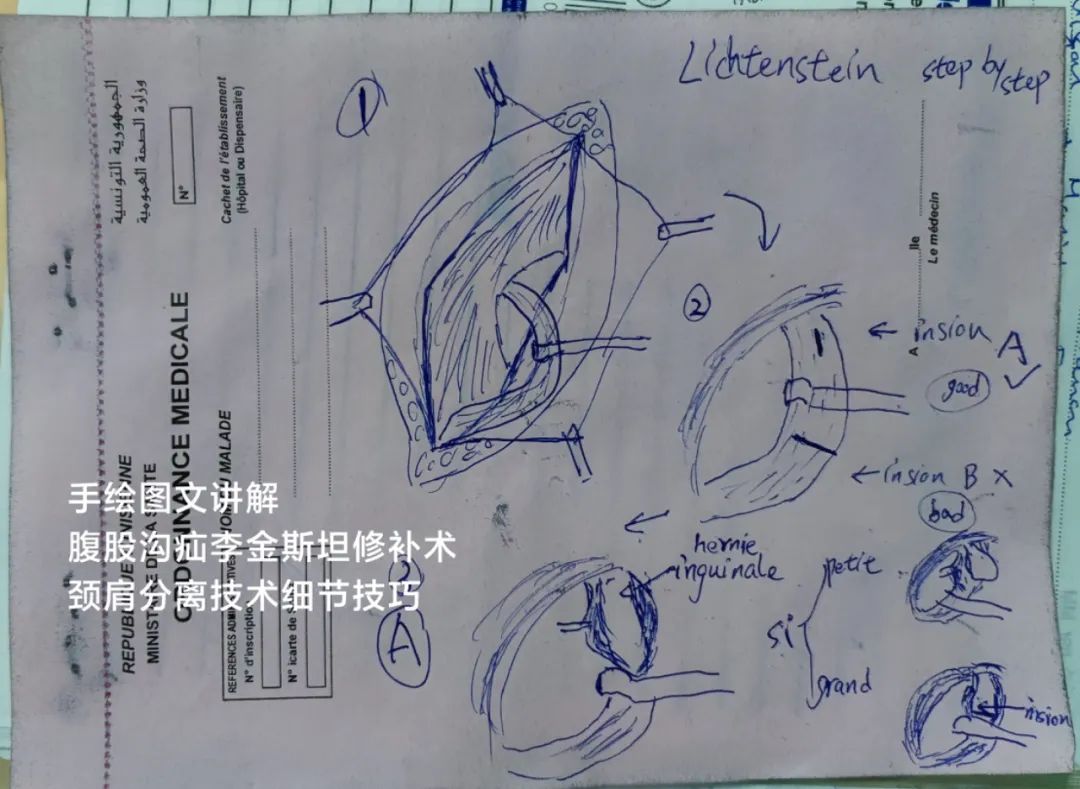 Lichtenstein step by step
①
②
← insion A ✓
good
← insion B ×
bad
hernie
inguinale
si
petit
grand
insion
A
手绘图文讲解
腹股沟疝李金斯坦修补术
颈肩分离技术细节技巧
الجمهورية التونسية
وزارة الصحة العمومية
N°
Cachet de l'établissement
(Hôpital ou Dispensaire)
ORDONNANCE MEDICALE
MALADE
REFERENCES
N° d'inscription
N° icarte de
A
lle
Le médecin